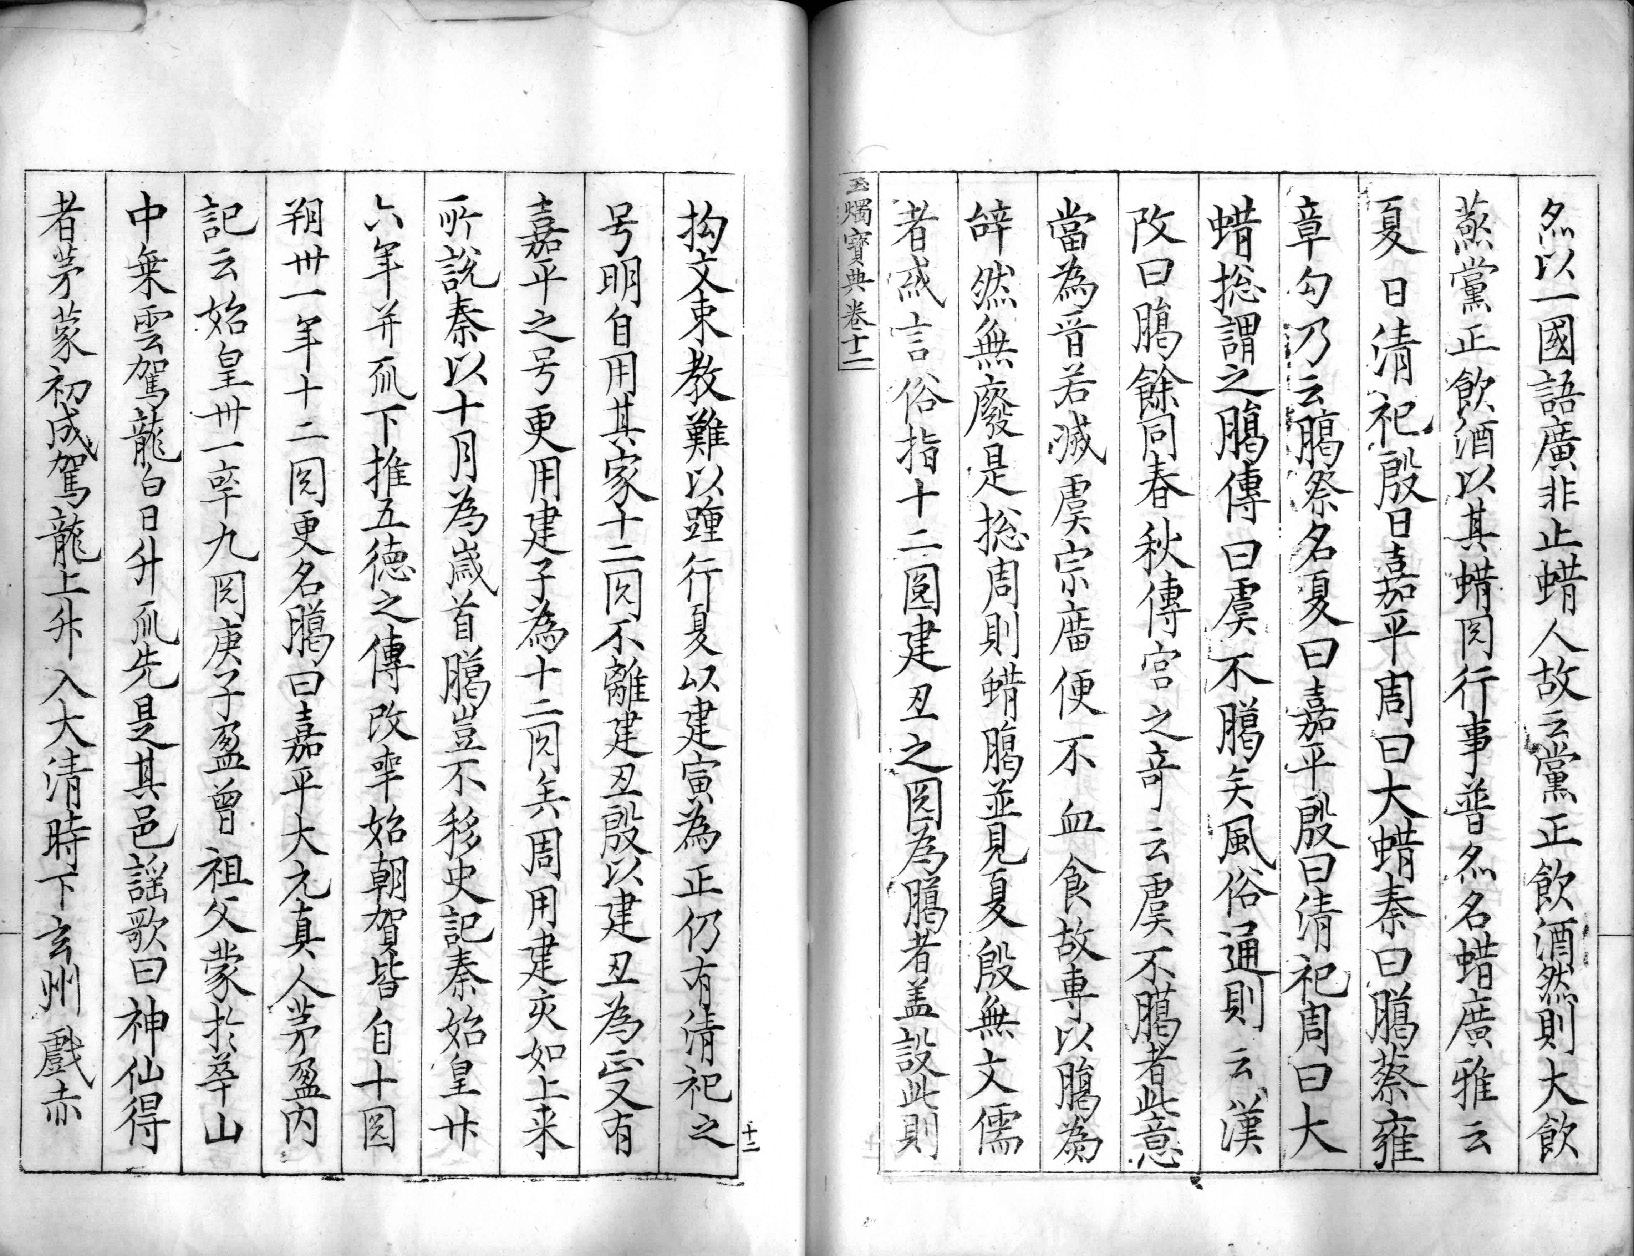 烝以一國語廣非止蜡人故云黨正飲酒然則大飲
蒸黨正飲酒以其蜡囘行事普烝名蜡廣雅云
夏曰清祀殷曰嘉平周曰大蜡秦曰臈蔡雍
章勾乃云臈祭名夏曰嘉平殷曰清祀周曰大
蜡捴謂之臈傳曰虞不臈矣風俗通則云漢
改曰臈餘同春秋傳宮之竒云虞不臈者此意
當為晋若滅虞宗廣便不血食故専以臈為
辝然無廢是捴周則蜡臈並見夏殷無文儒
者或言俗指十二囘建丑之囘為臈者盖設此則
玉燭寳典卷十二
拘文束教難以踵行夏以建寅為正仍有清祀之
号明自用其家十二囘不離建丑殷以建丑為正又有
嘉平之号更用建子為十二囘矣周用建亥如上来
所說秦以十月為歳首臈豈不移史記秦始皇廿
六年并亙下推五德之傳改年始朝賀皆自十囘
朔卅一年十二囘更名臈曰嘉平大元真人茅盈内
記云始皇卅一年九囘庚子盈曾祖父蒙於華山
中乗雲駕龍白日升亙先是其邑謡歌曰神仙得
者茅蒙初成駕龍上升入大清時下玄州戲赤
十二